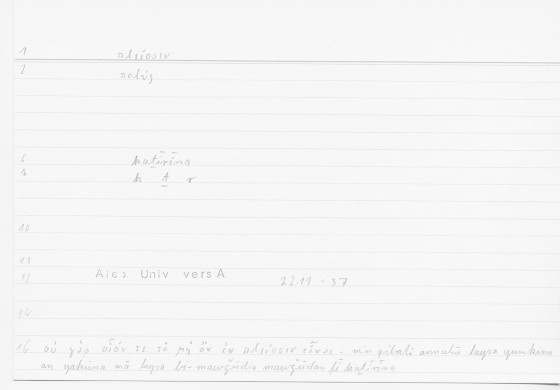 1 πλείοσιν
2 πολύς
kaṯīrīna
k ṯ r
10
11
Alex. Univ vers A 22.11 - 37
14
16 οὐ γὰρ οἷόν τε τὸ μὴ ὂν ἐν πλείοσιν εἶναι - min qibali annahū laysa yumkinu
an yakūna mā laysa bi-mawǧūdin mawǧūdan fī kaṯīrīna